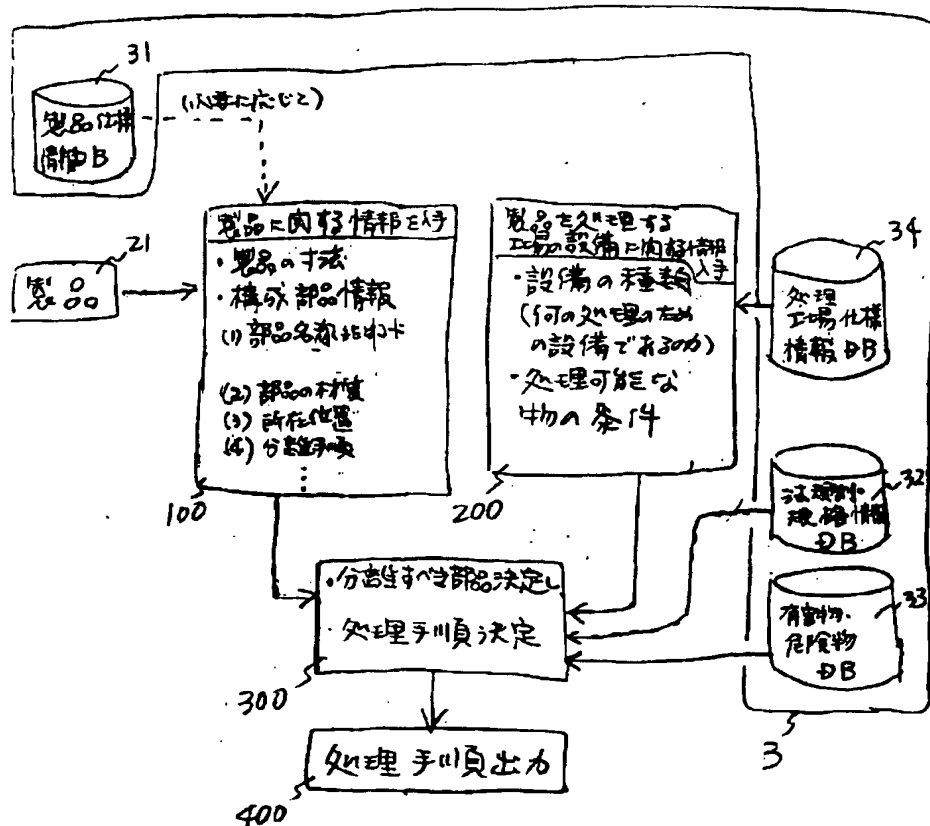 31
製品仕様
情報DB
(必要に応じて)
21
製品
製品に関する情報を入手
・製品の寸法
・構成部品情報
(1) 部品名称
(2) 部品の材質
(3) 所在位置
(4) 分離手順
100
製品を処理する
工場の設備に関する情報
入手
・設備の種類
(何の処理のため
の設備であるのか)
・処理可能な
物の条件
200
34
処理
工場仕様
情報DB
32
法規制・
規格情報
DB
33
有害物・
危険物
DB
3
・分離すべき部品決定し
・処理手順決定
300
処理手順出力
400